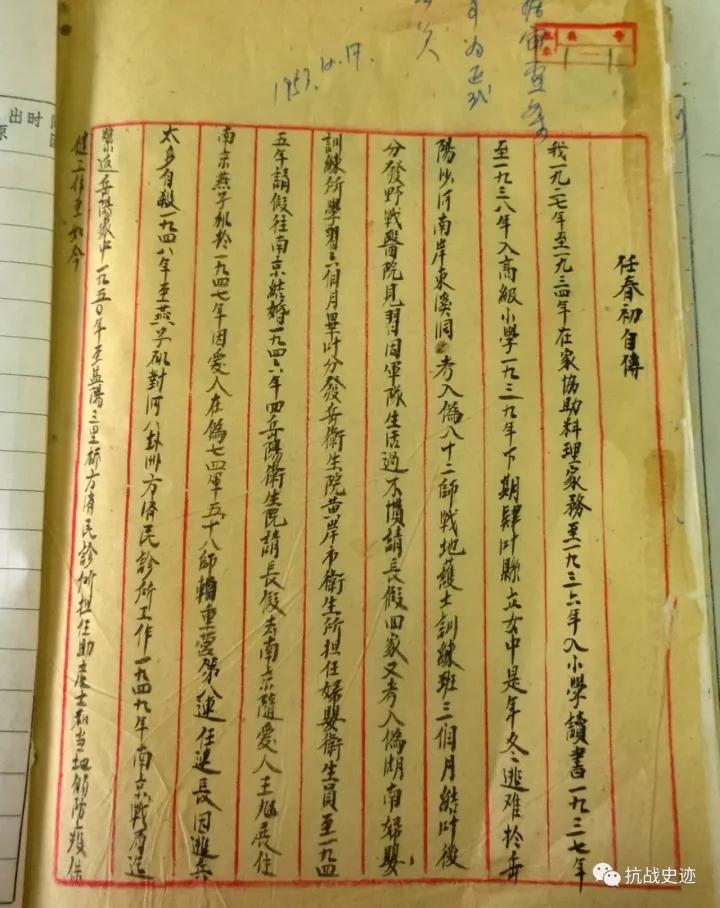 任春初自傳
我一九二七年至一九三四年在家協助料理家務至一九三六年入小學讀書一九三七年
至一九三八年入高級小學一九三九年下期肄叶縣立女中是年冬逃难於岳
陽沙河南岸東溪洞考入偽八十二師戰地護士訓練班三個月結叶後
分發野戰醫院見習因軍隊生活過不慣請長假回家又考入偽湖南婦嬰
訓練所學習六個月畢叶分發岳衛生院黄岸市衛生所担任婦嬰衛生員至一九四
五年請假往南京結婚一九四六年回岳陽衛生院請長假去南京隨爱人王旭展住
南京燕子矶於一九四七年因爱人在偽七四軍五十八師輜重营第八連任連長因逃兵
太多自殺一九四八年至燕子矶對河八卦洲方濟民診所工作一九四九年南京戰局迫
緊返岳陽家中一九五〇年至益陽三里桥方濟民診所担任助產士和当地防疫保
健工作至如今
审查
为正式
1953.10.17.
出时间
抗战史迹